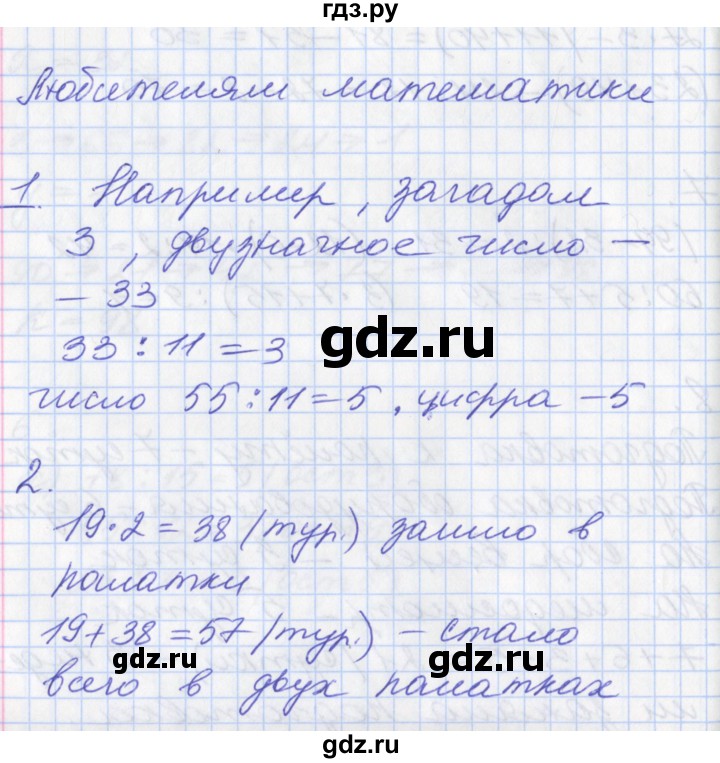 гдз.ру
Любителям математики
1. Например, загадал
3, двузначное число –
– 33
33 : 11 = 3
gdz.ru
число 55 : 11 = 5, цифра – 5
2.
19 · 2 = 38 (тур.) зашло в
палатки
19 + 38 = 57 (тур.) – стало
gdz.ru gdz.ru
всего в двух палатках
gdz.ru